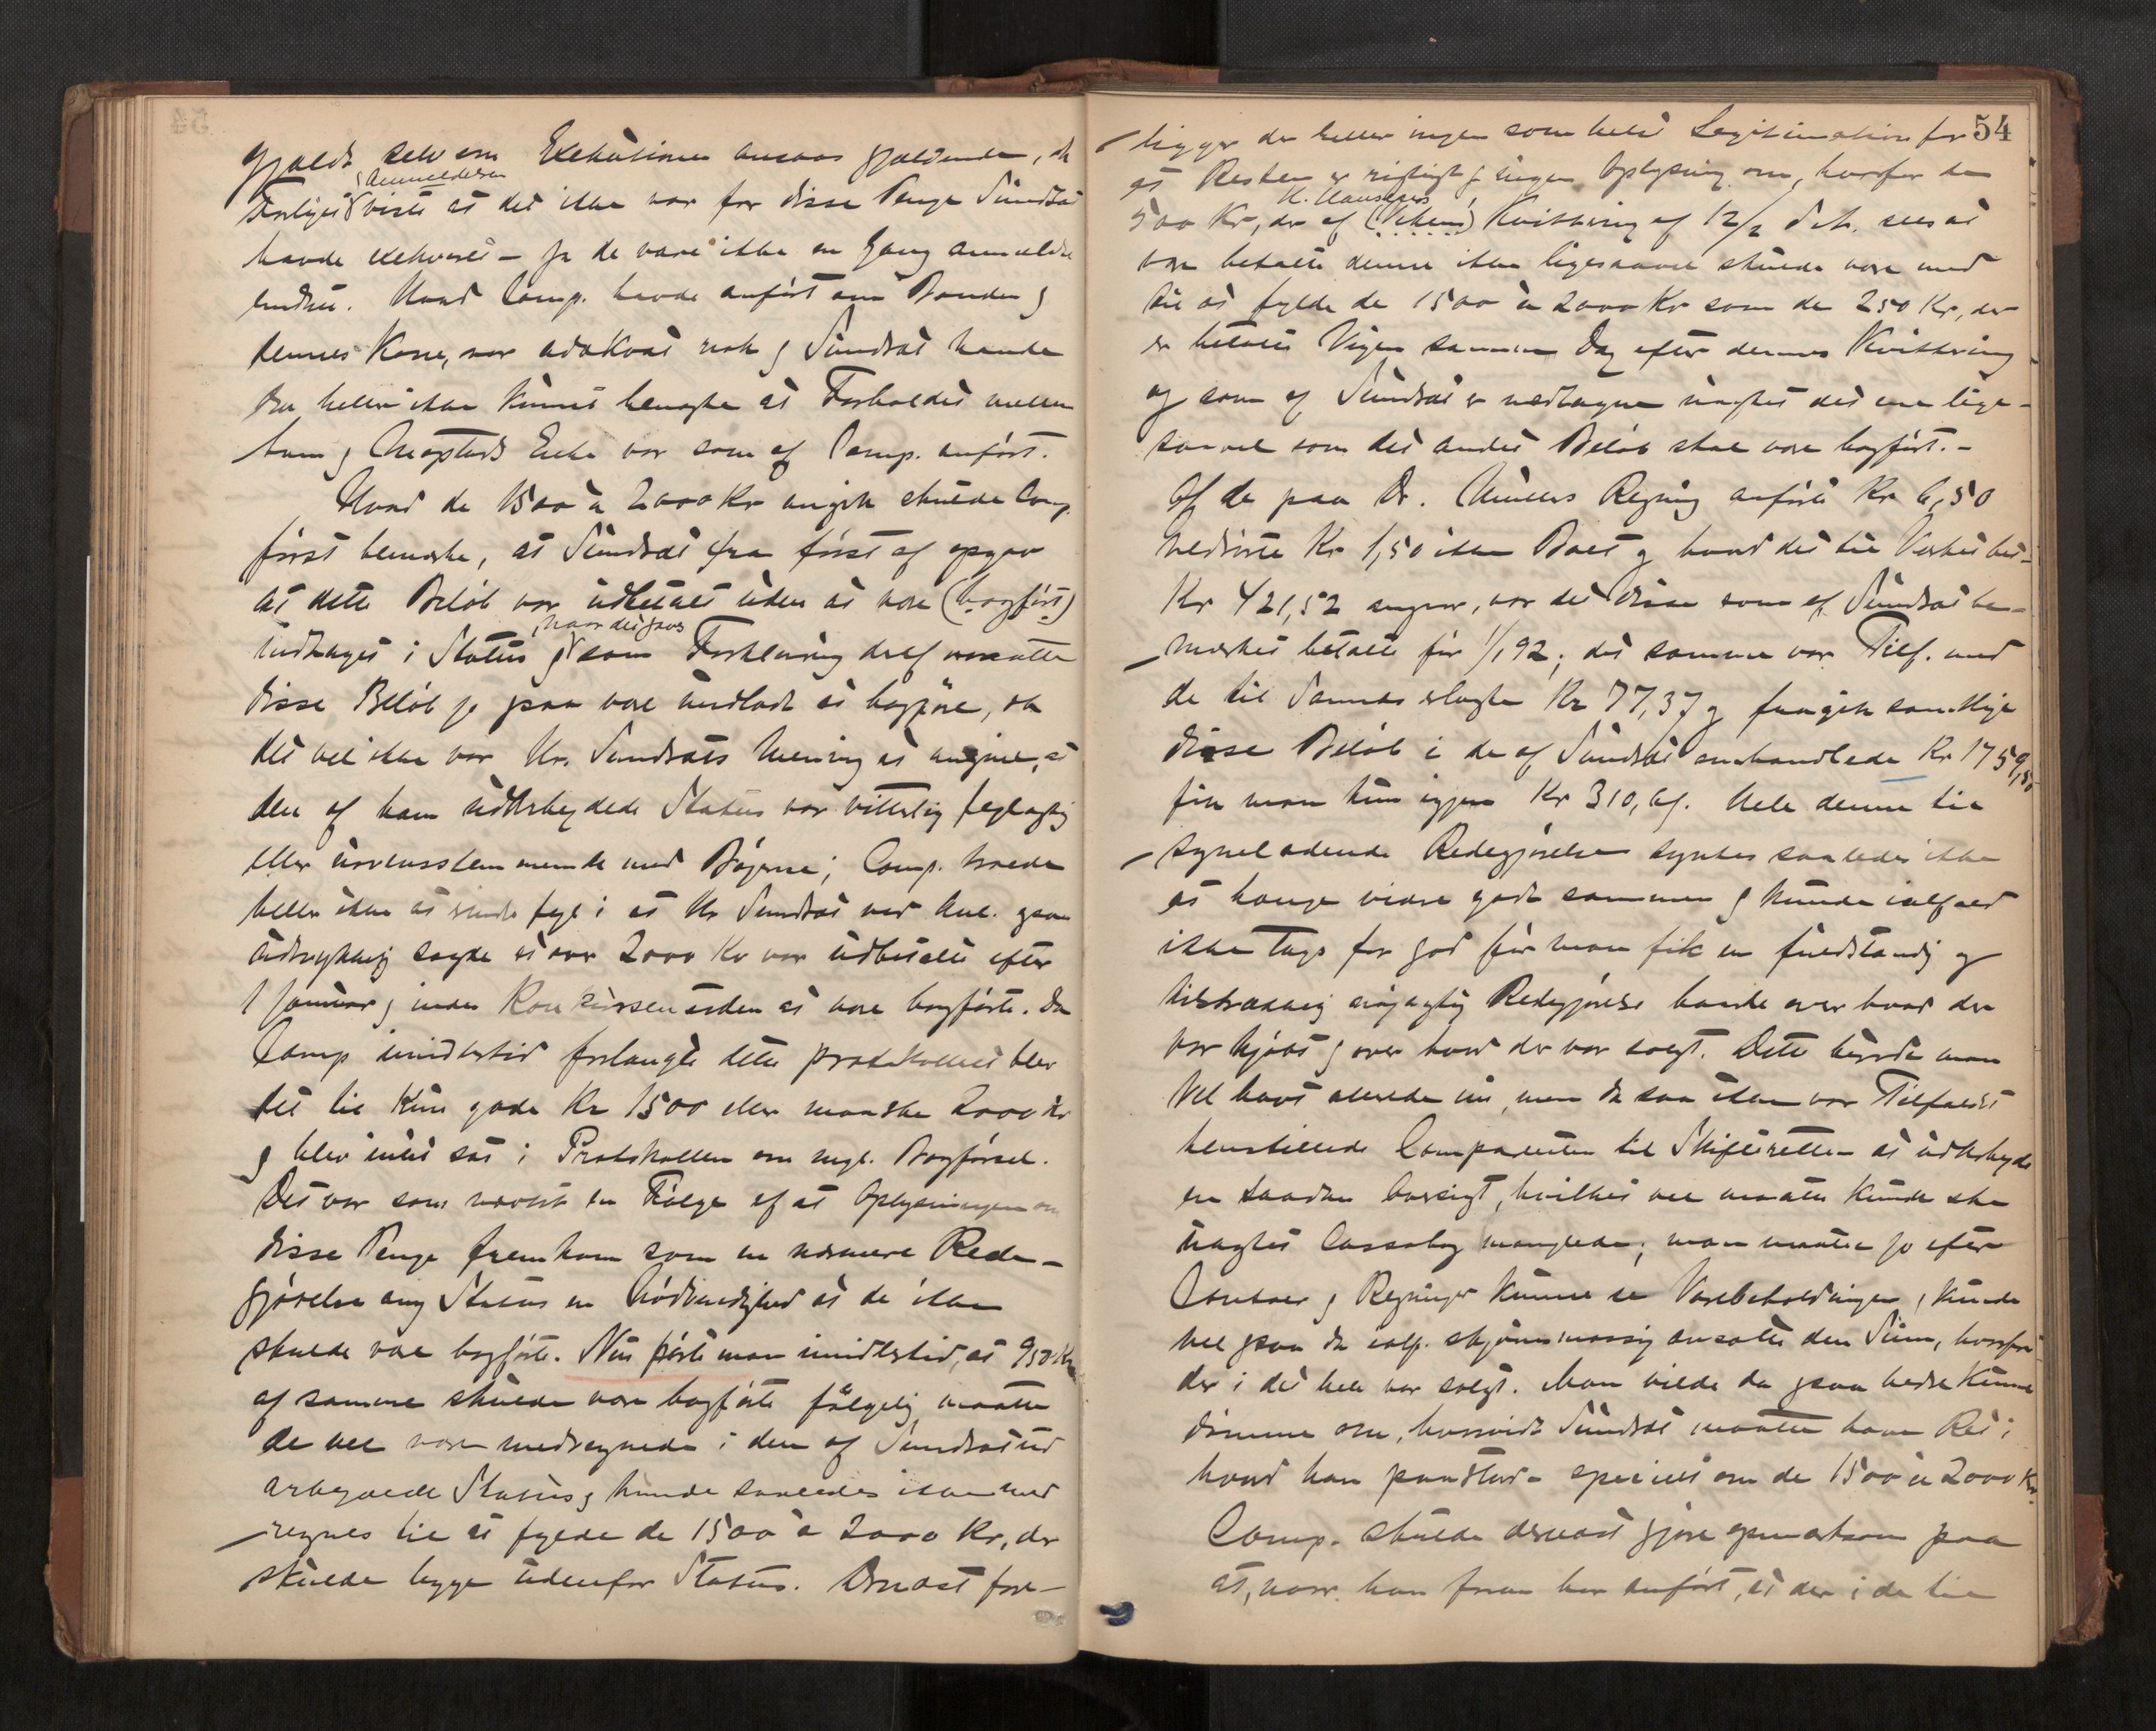 Gjæld, selv om Exekutionen ansaas gjældende, da
Anmeldelsen
Forliget viste at det ikke var for disse Penge Sundsat
havde exekveret - ja de vare ikke en Gang anmeldte
endnu. Hvad Comp. havde anført om Bonden og
dennes Kone, var adækvat nok og Sundsat havde
da heller ikke kunnet benægte at Forholdet mellem
ham og Enke var som af Comp. anført.
Hvad de 1500 à 2000 Kr angik skulde Comp.
først bemærke, at Sundsat fra først af opgav
at dette Beløb var udbetalt uden at være (bogført)
naar det gaves
indtaget i Status og som Forklaring deraf
disse Beløb jo paa være undladt at bogføre, da
det vel ikke var Hr. Sundsats Mening at angive, at
den af ham udarbeidede Status var vitterlig feilagtig
eller uoverensstemmende med Bøgerne; Comp. troede
heller ikke at tage feil i at Hr Sundsat ved Anl. ogsaa
udtrykkelig sagde at over 2000 Kr var udbetalt efter
1 Januar og inden Konkursen uden at være bogførte. Da
Comp imidlertid forlangte dette protokolleret blev
det til Kun gode Kr 1500 eller maaske 2000 Kr
og blev intet sat i Protokollen om mgl. Bogførsel.
Det var som nævnt en Følge af at Oplysningen om
disse Penge fremkom som en nærmere Rede-
gjørelse ang Status en Nødvendighed at de ikke
skulde være bogførte. Nu hørte man imidlertid, at 950 Kr
af samme skulde være bogførte følgelig maatte
de vel være medregnede i den af Sundsat ud
arbeidede Status og kunde saaledes ikke med
regnes til at fylde de 1500 à 2000 Kr, der
skulde ligge udenfor Status. Dernæst fore-
54
ligger der heller ingen som helst Legitimation for
at Resten er rigtigt og ingen Oplysning om, hvorfor de
H. Clausens
500 Kr, der af (Vikens) Kvittering af 12/2 d. A. sees at
være betalte denne ikke ligesaavel skulde være med
til at fylde de 1500 à 2000 Kr som de 250 Kr, der
er betalt Vigen samme Dag efter dennes Kvittering
og som af Sundsat er medtagne uagtet det ene lige-
saavel som det andet Beløb skal være bogført. -
Af de paa Dr. Regning anførte Kr 6,50
vedrørte Kr 1,50 ikke Boet og hvad det til
Kr 421,52 angaar, var det disse som af Sundsat be-
mærket betalte før 1/1 92; det samme var Tilf. med
de til Sannes erlagte Kr 77,37 og fragik samtlige
disse Beløb i de af Sundsat omhandlede Kr 1759,50
fik man kun igjen Kr 310,61. Hele denne til
syneladende Redegjørelse syntes saaledes ikke
at hænge videre godt sammen og kunde ialfald
ikke tages for god før man fik en fuldstændig og
tilstrækkelig nøiagtig Redegjørelse baade over hvad der
var kjøbt og over hvad der var solgt. Dette burde man
vel havt allerede nu, men da saa ikke var Tilfældet
henstillede Comparenten til Skifteretten at udarbeide
en saadan Oversigt, hvilket vel maatte kunde ske
uagtet Cassabog manglede; man maatte jo efter
Contoer og Regninger kunne se Varebeholdningen, kunde
vel ogsaa da ialf. skjønsmæssig ansætte den Sum, hvorfor
der i det hele var solgt. Man vilde da ogsaa bedre kunne
dømme om, hvorvidt Sundsat maatte have Ret i
hvad han paastod - specielt om de 1500 à 2000 Kr.
Comp. skulde dernæst gjøre opmærksom paa
at, naar han foran har anført, at der i de til